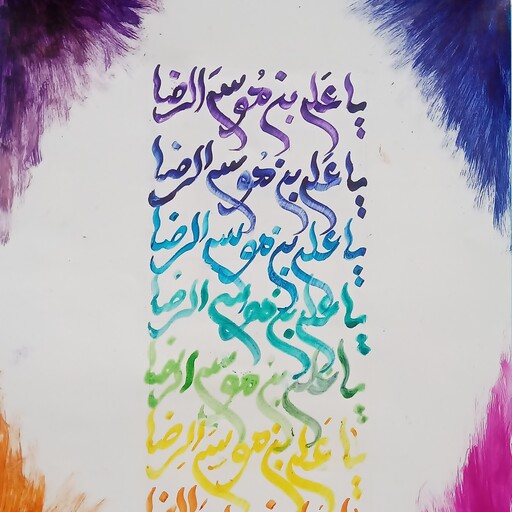 یا عَلی بن مُوسَی الرضا
یا عَلی بن مُوسی الرضا
یا علی بن موسی الرضا
یا علی بن موسی الرضا
یا علی بن موسی الرضا
یا عَلی بن موسَی الرِضا
یا علی بن موسی الرضا